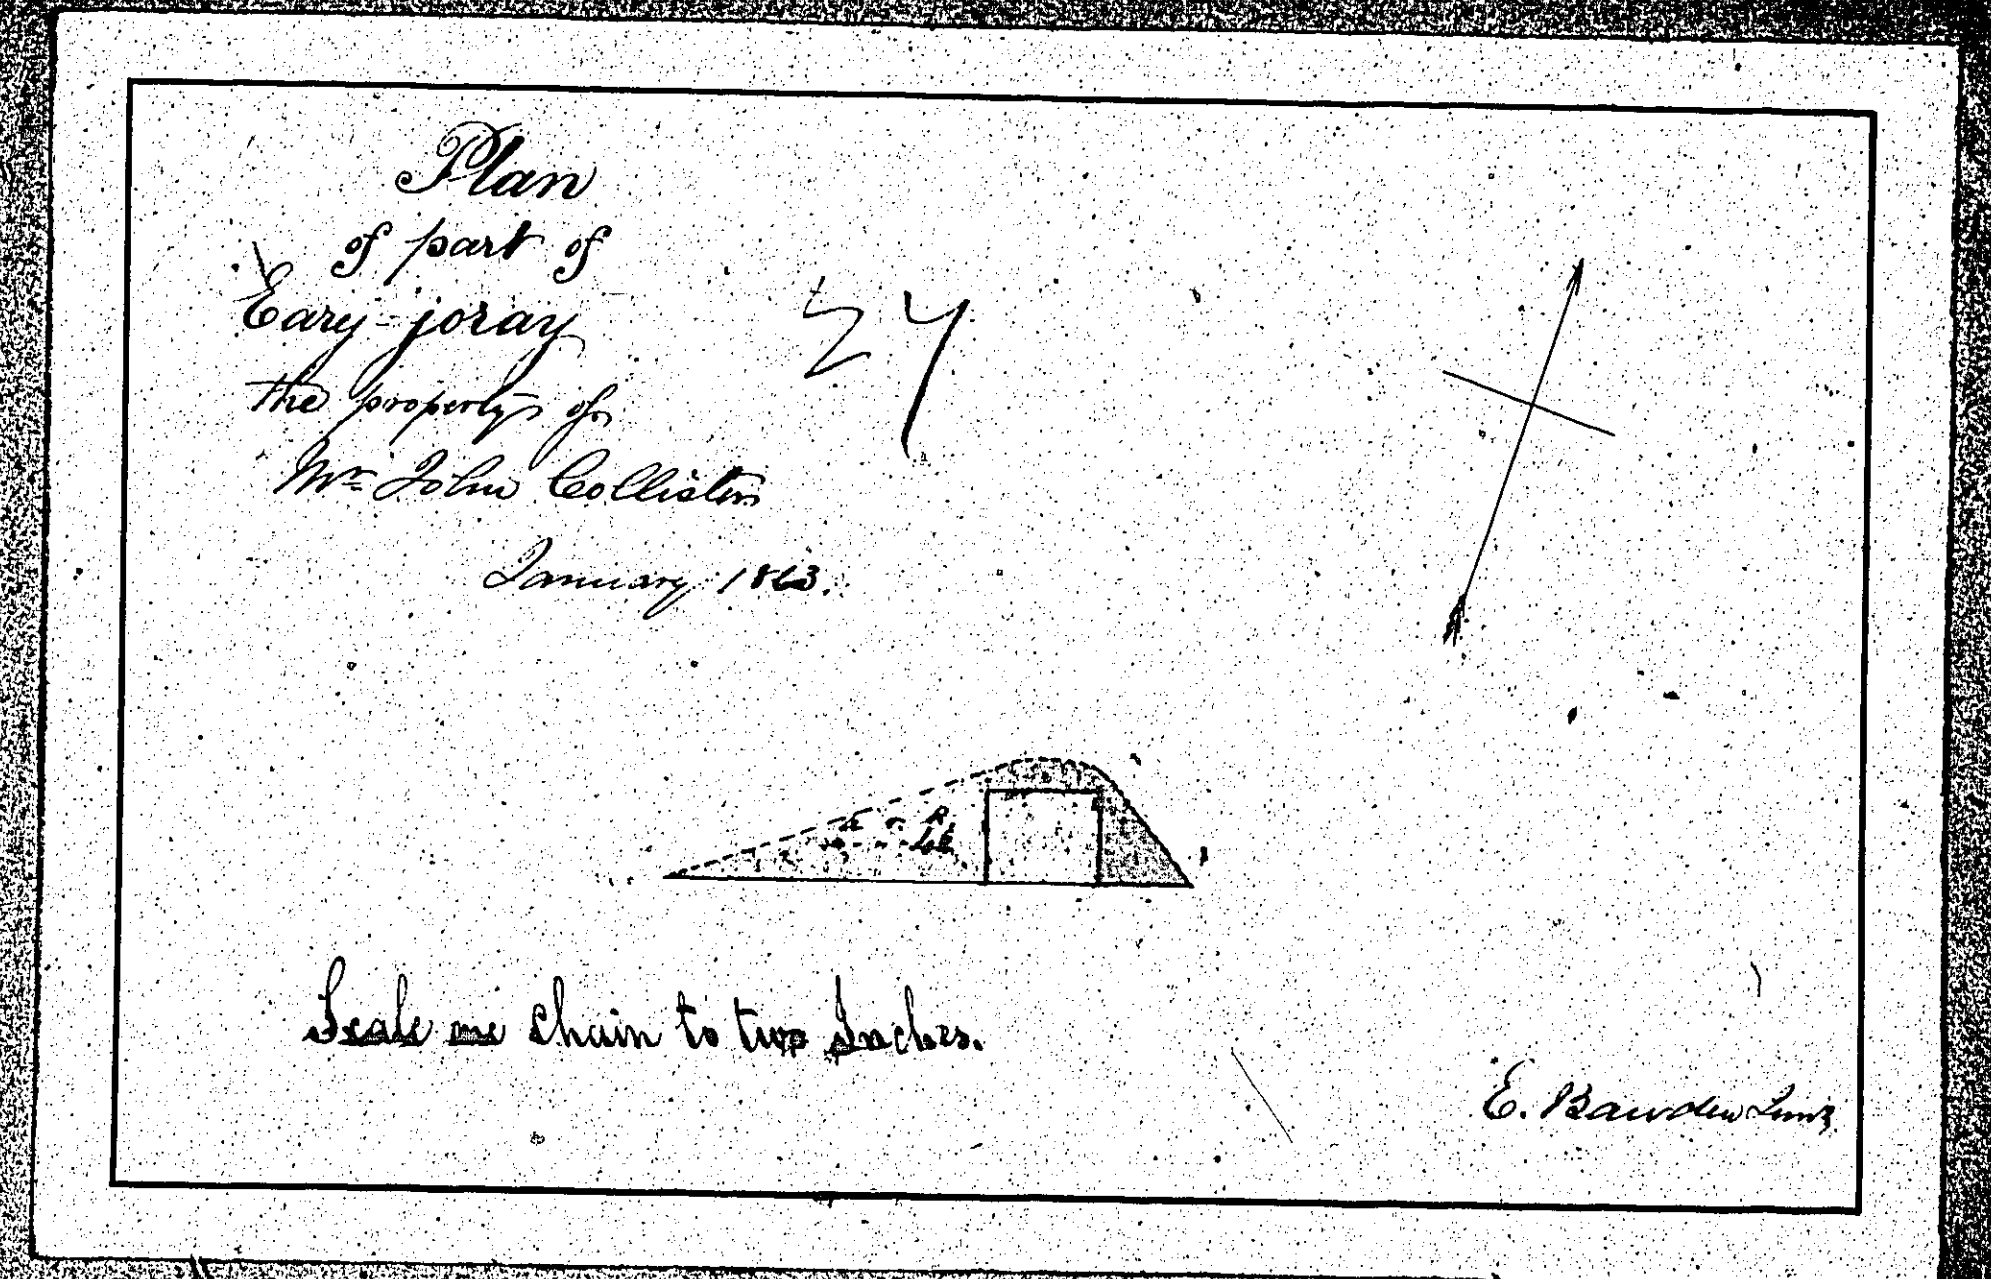 Plan
of part of
Eary-joray
the property of
Mr John Collister
January 1863.
27
a r P.
Scale one Chain to two Inches.
E. Bawden